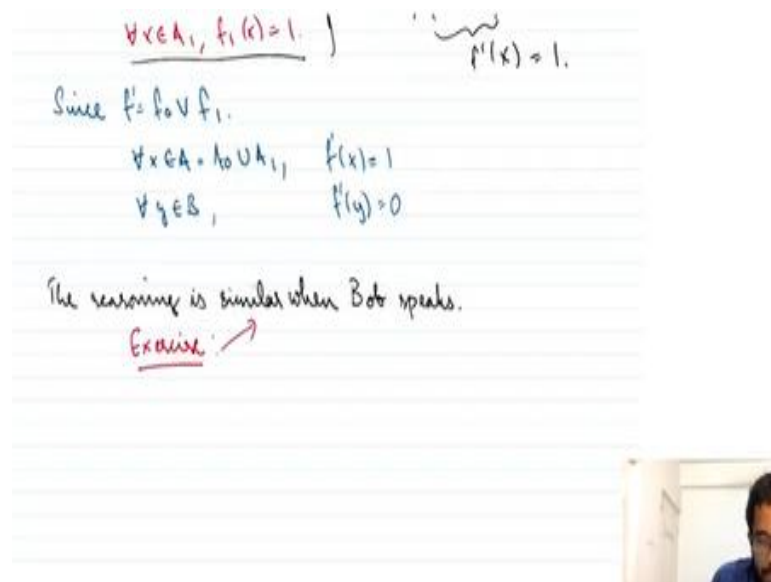 ∀x∈A₁, f₁(x)=1. }
f'(x) = 1.
Since f' = f₀ ∨ f₁.
∀x∈A = A₀ ∪ A₁, f'(x) = 1
∀y∈B, f'(y) = 0
The reasoning is similar when Bob speaks.
Exercise: